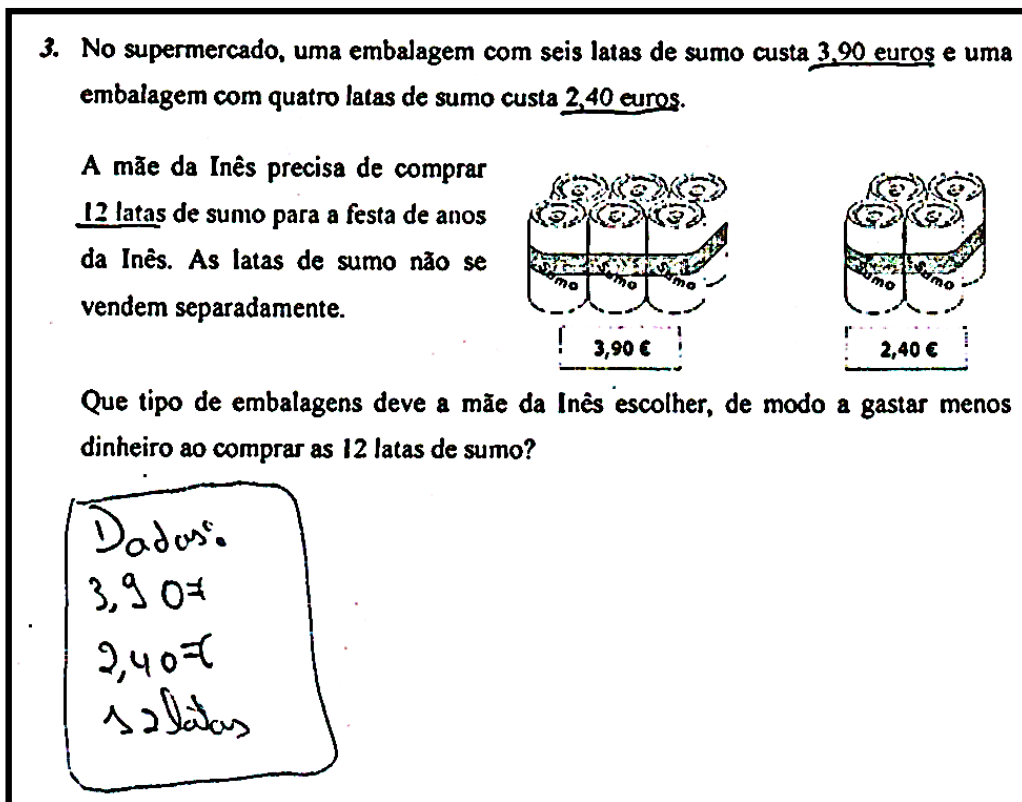 3. No supermercado, uma embalagem com seis latas de sumo custa 3,90 euros e uma
embalagem com quatro latas de sumo custa 2,40 euros.
A mãe da Inês precisa de comprar
12 latas de sumo para a festa de anos
da Inês. As latas de sumo não se
vendem separadamente.
Sumo Sumo Sumo
Sumo Sumo
3,90 €
2,40 €
Que tipo de embalagens deve a mãe da Inês escolher, de modo a gastar menos
dinheiro ao comprar as 12 latas de sumo?
Dados:
3,90€
2,40€
12 latas